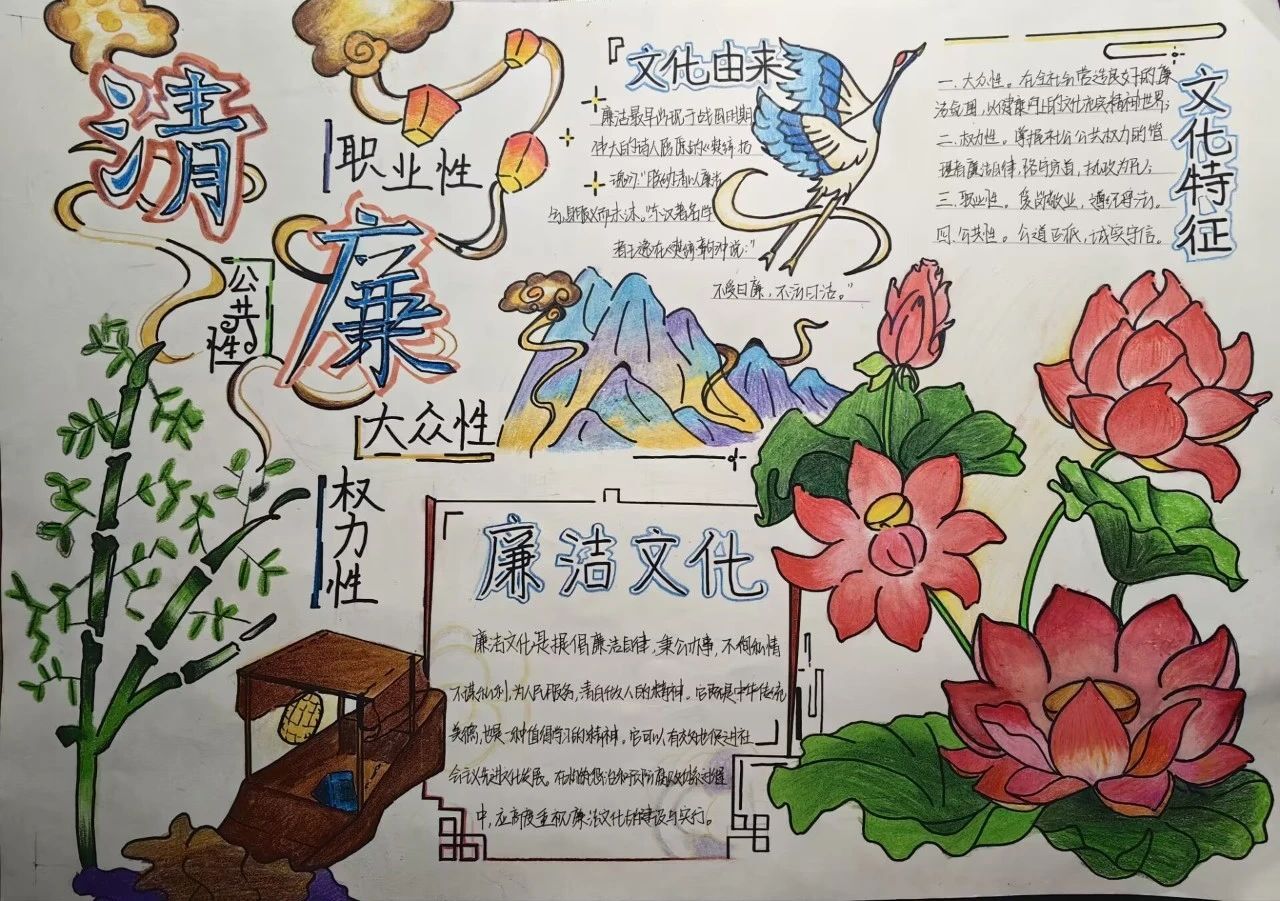 清
廉
职业性
公共性
大众性
权力性
『文化由来
廉洁最早出现于战国时期
伟大的诗人屈原的《楚辞·招
魂》："朕幼清以廉洁
兮,身服义而未沫。"东汉著名学
者王逸在《楚辞·章句》中说："
不受曰廉，不污曰洁。"
文化特征
一.大众性。在全社会营造良好的廉
洁氛围，以健康向上的文化充实精神世界；
二.权力性。
廉洁自律，恪守
三.职业性。爱岗敬业，遵纪守法。
四.公共性。公道正派，诚实守信。
廉洁文化
廉洁文化是提倡廉洁自律，秉公办事，不徇私情
不谋私利，为人民服务，清白做人的精神。它既是中华传统
美德，也是一种值得学习的精神。它可以有效地促进社
会主义先进文化发展。在
中，应高度重视廉洁文化的建设与实行。